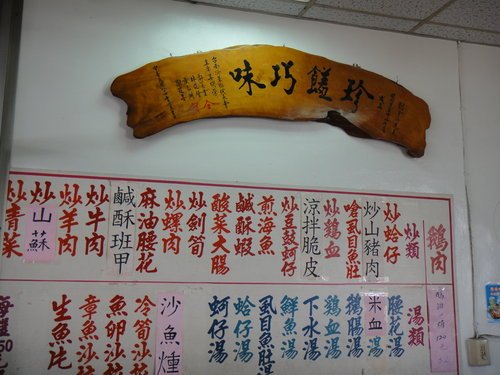 珍饈巧味
鵝肉
炒類
炒蛤仔
炒山豬肉
嗆虱目魚肚
炒鵝血
涼拌脆皮
炒豆鼓蚵仔
煎海魚
鹹酥蝦
酸菜大腸
炒劍筍
炒螺肉
麻油腰花
鹹酥班甲
炒牛肉
炒羊肉
炒山蘇
炒青菜
湯類
腰花湯
米血湯
鵝腸湯
鵝血湯
下水湯
鮮魚湯
虱目魚湯
蛤仔湯
蚵仔湯
沙魚燻
冷筍沙
魚卵沙
章魚沙
生魚片
每 50